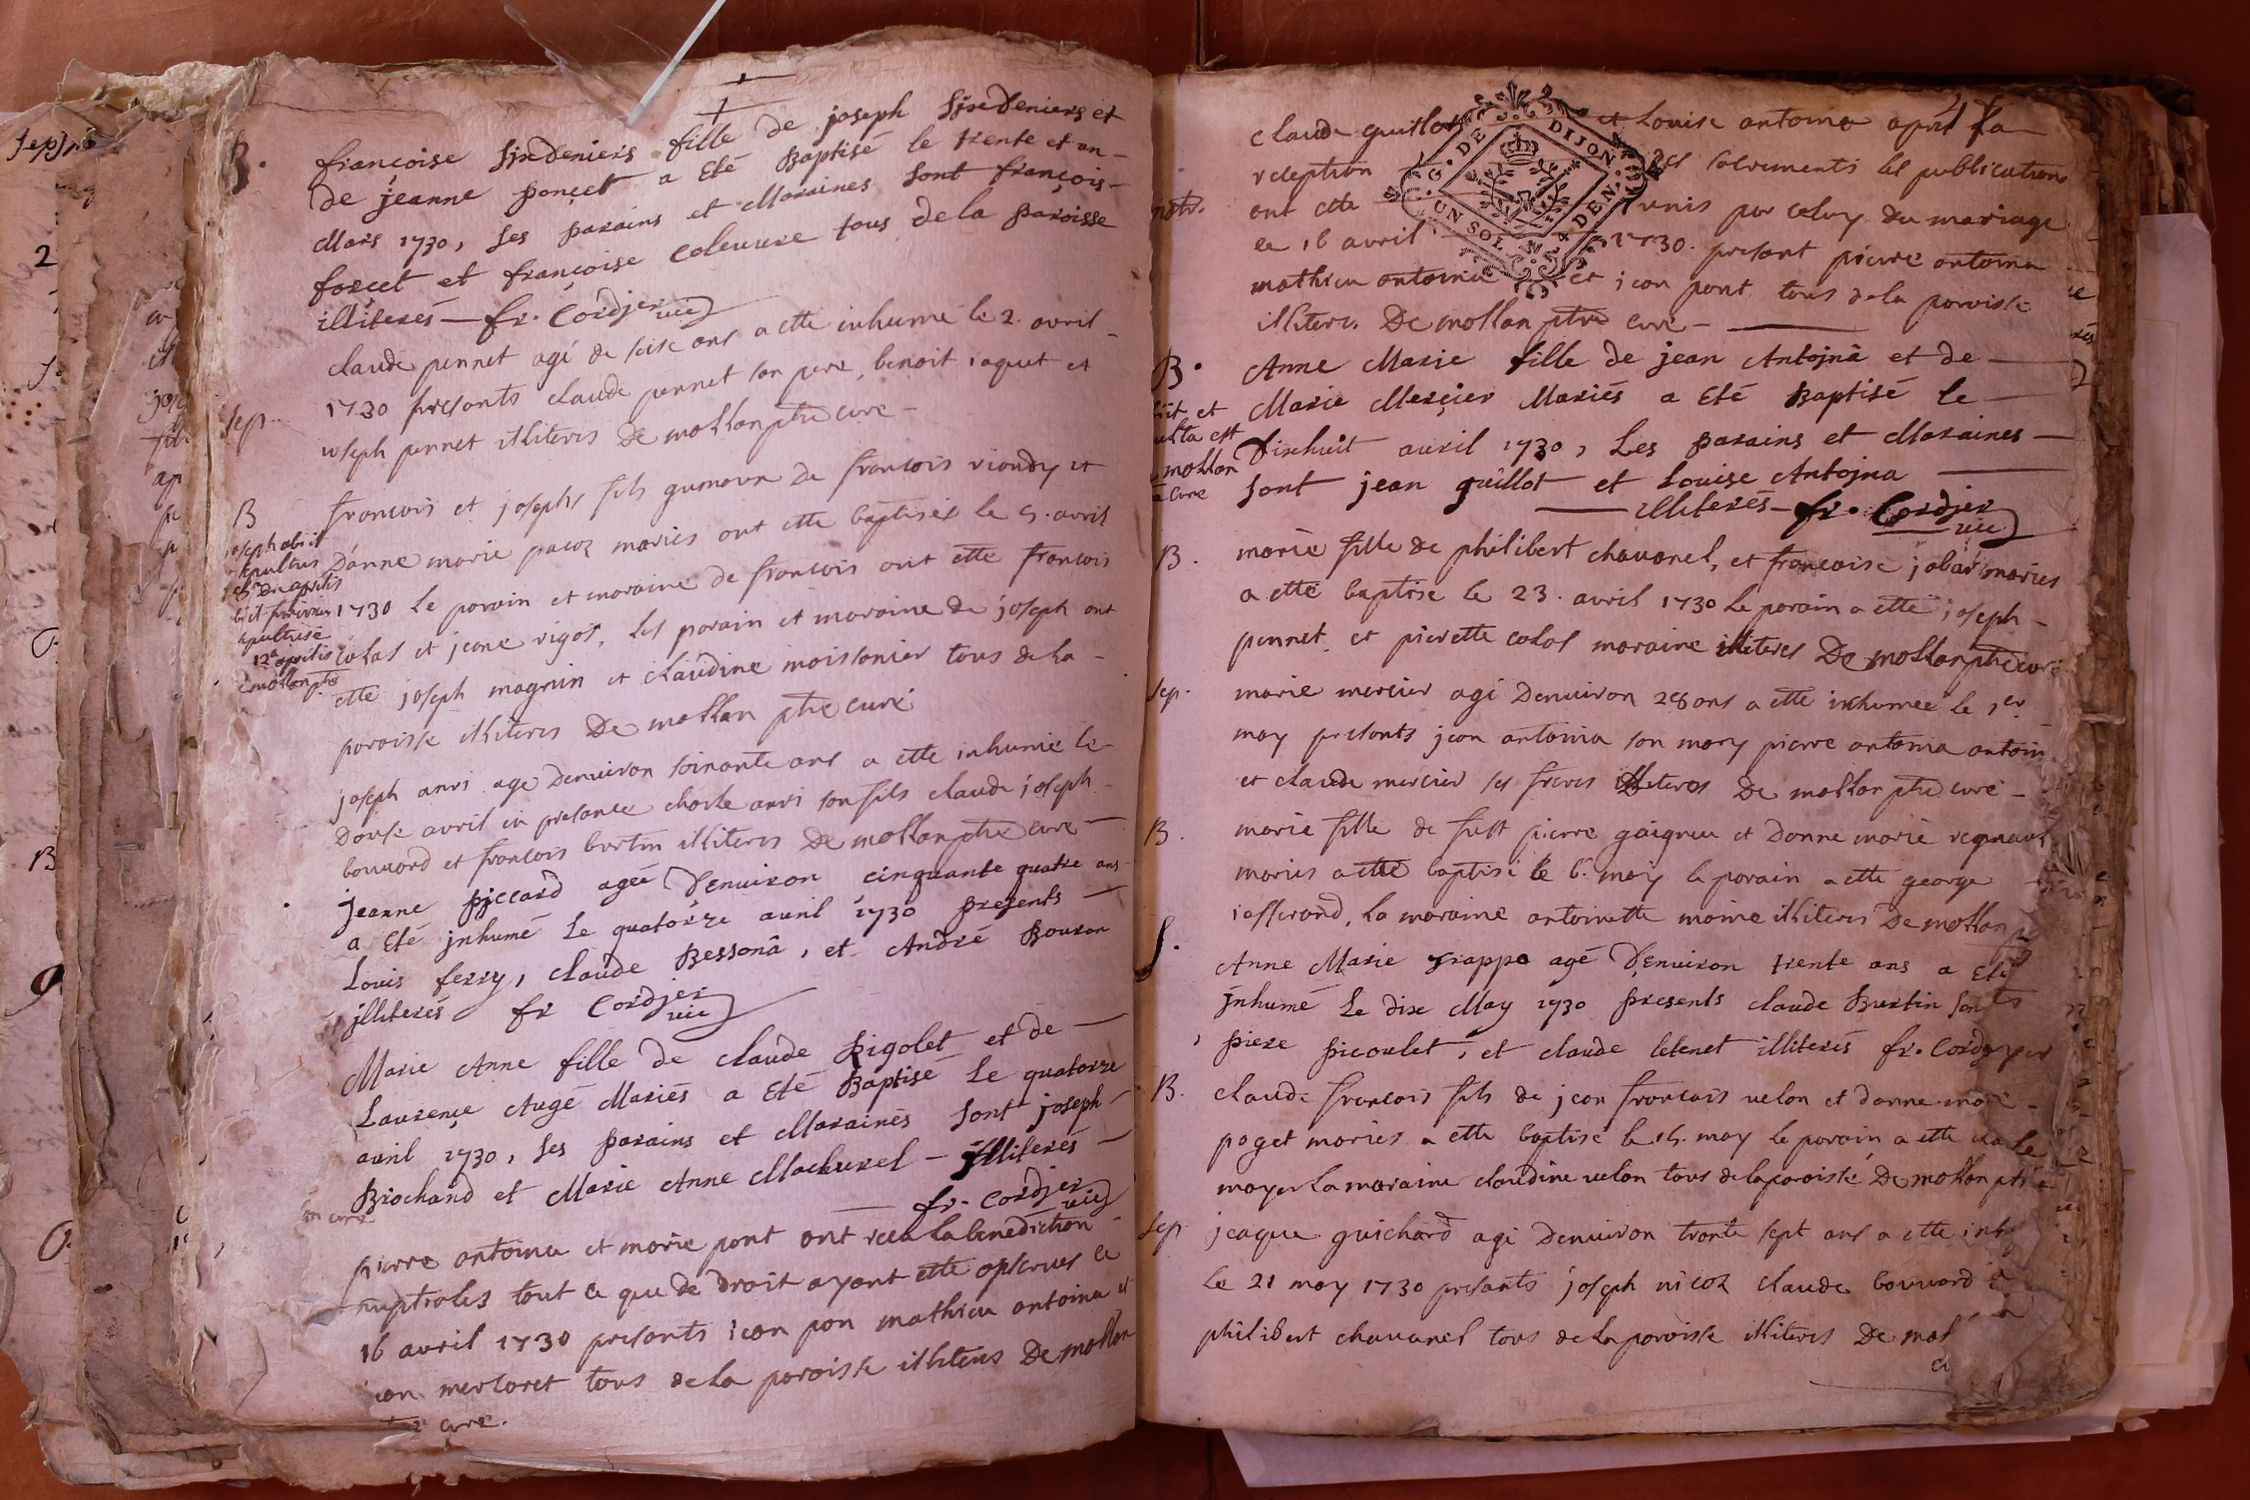 B.
françoise sixdeniers fille de joseph sixdeniers et
de jeanne ponçet a Eté Baptisé le trente et un
Mars 1730, Les parains et Maraines sont françois
forçet et françoise Coleuure tous de la paroisse
illiterés — fr. Cordjer vic
claude pennet agé de seise ans a ette inhumé le 2 avril
Sep.
1730 presants claude pennet son pere, benoit iaquet et
ioseph pennet illiteres De mollan ptre cure
B
francois et joseph fils gumeaux de francois rioudy et
D'anne marie pacoz mariés ont ette baptises le 5. avril
1730 le parain et maraine de francois ont ette francois
colas et jeane rigot, les parain et maraine de joseph ont
ette joseph magnin et claudine moissonier tous de la
paroisse illiteres De mollan ptre curé
joseph obiit
sepultus
aprilis
12a aprilis
Demollan ptre
joseph anri age denuiron soixante ans a ette inhumé le
Douse avril en presance charle anri son fils claude joseph
bouuard et francois burtin illiteres De mollan ptre cure
jeanne piccard agée D'enuiron cinquante quatre ans
a Eté jnhumé Le quatorze auril 1730 presents
Louis ferry, claude Bessonâ, et André Bouran
jlliterés fr Cordjer vic
Marie Anne fille de claude pigolet et de
Laurençe Augé Mariés a Eté Baptisé Le quatorze
auril 1730, Les parains et Maraines sont joseph
Brochand et Marie Anne Machurel — illiterés
fr. Cordjer vic
pierre antoina et marie pont ont receu la benediction
nuptiales tout ce que de droit ayant ette obserues le
16 avril 1730 presants jean pon mathieu antoina et
jean merloret tous de la paroisse illiteres De mollan
ptre cure.
claude guillot et Louise antoina apres la
reception des sacrements les publications
ont ette unis par celuy du mariage
le 16 avril 1730. presant pierre antoina
mathieu antoina et jean pont tous de la paroisse
illiteres De mollan ptre curé
G. DE DIJON
UN SOL 4 DEN.
B.
Anne Marie fille de jean Antojnâ et de
Marie Merçier Mariés a Eté Baptisé le
Dixhuit auril 1730, Les parains et Maraines
sont jean guillot et Louise Antojna
illiterés — fr. Cordjer vic
mollan
cure
B.
marie fille de philibert chauanel, et francoise jobar mariés
a etté baptise le 23. avril 1730 le parain a etté joseph
pennet et pierrette colas maraine illiteres De mollan ptre cure
Sep.
marie mercier agé Denuiron 28 ans a ette inhumee le 1er
may presants jean antoina son mary pierre antoina antoin
et claude mercier ses freres illiteres De mollan ptre curé
B.
marie fille de pierre gaigneu et Danne marie regnaut
mariés a etté baptisé le 6. may le parain a ette george
iasserand, la maraine antoinette moine illiteres De mollan
S.
Anne Marie Trappe agé D'enuiron trente ans a Eté
jnhumé Le dix May 1730 presents claude Burtin
piere picoulet, et claude letenet illiterés fr. Cordjer
B.
claude francois fils de jean francois uelon et danne marie
paget mariés a etté baptisé le 15. may le parain a etté claude
mayer la maraine claudine uelon tous de la paroisse De mollan ptre
Sep
jeaque guichard agé Denuiron trante sept ans a ette inh
le 21 may 1730 presants joseph nicoz claude bouuard
philibert chauanel tous de la paroisse illiteres De mol